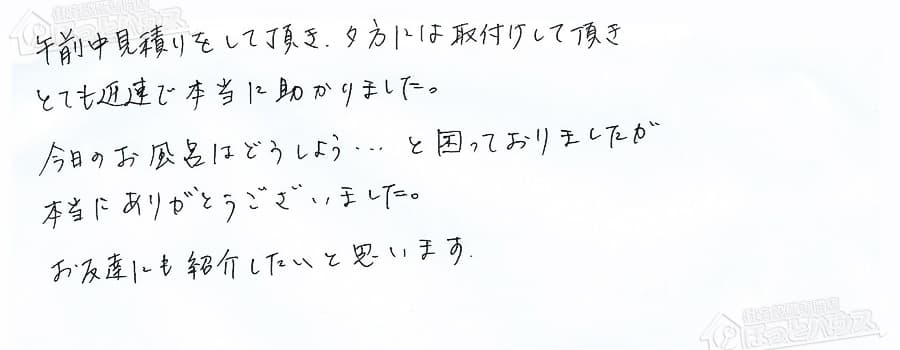 午前中見積りをして頂き、夕方には取付けして頂き
とても迅速で本当に助かりました。
今日のお風呂はどうしよう…と困っておりましたが
本当にありがとうございました。
お友達にも紹介したいと思います.
住宅設備専門店
ほっとハウス
住宅設備専門店
ほっとハウス